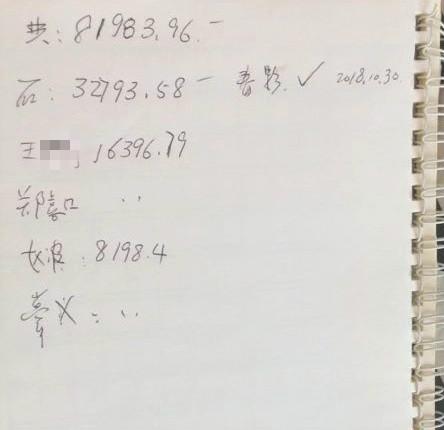 共: 81983.96.—
石: 32793.58 — 春影. ✓ 2018.10.30.
王 16396.79
郑 〃
波: 8198.4
: 〃